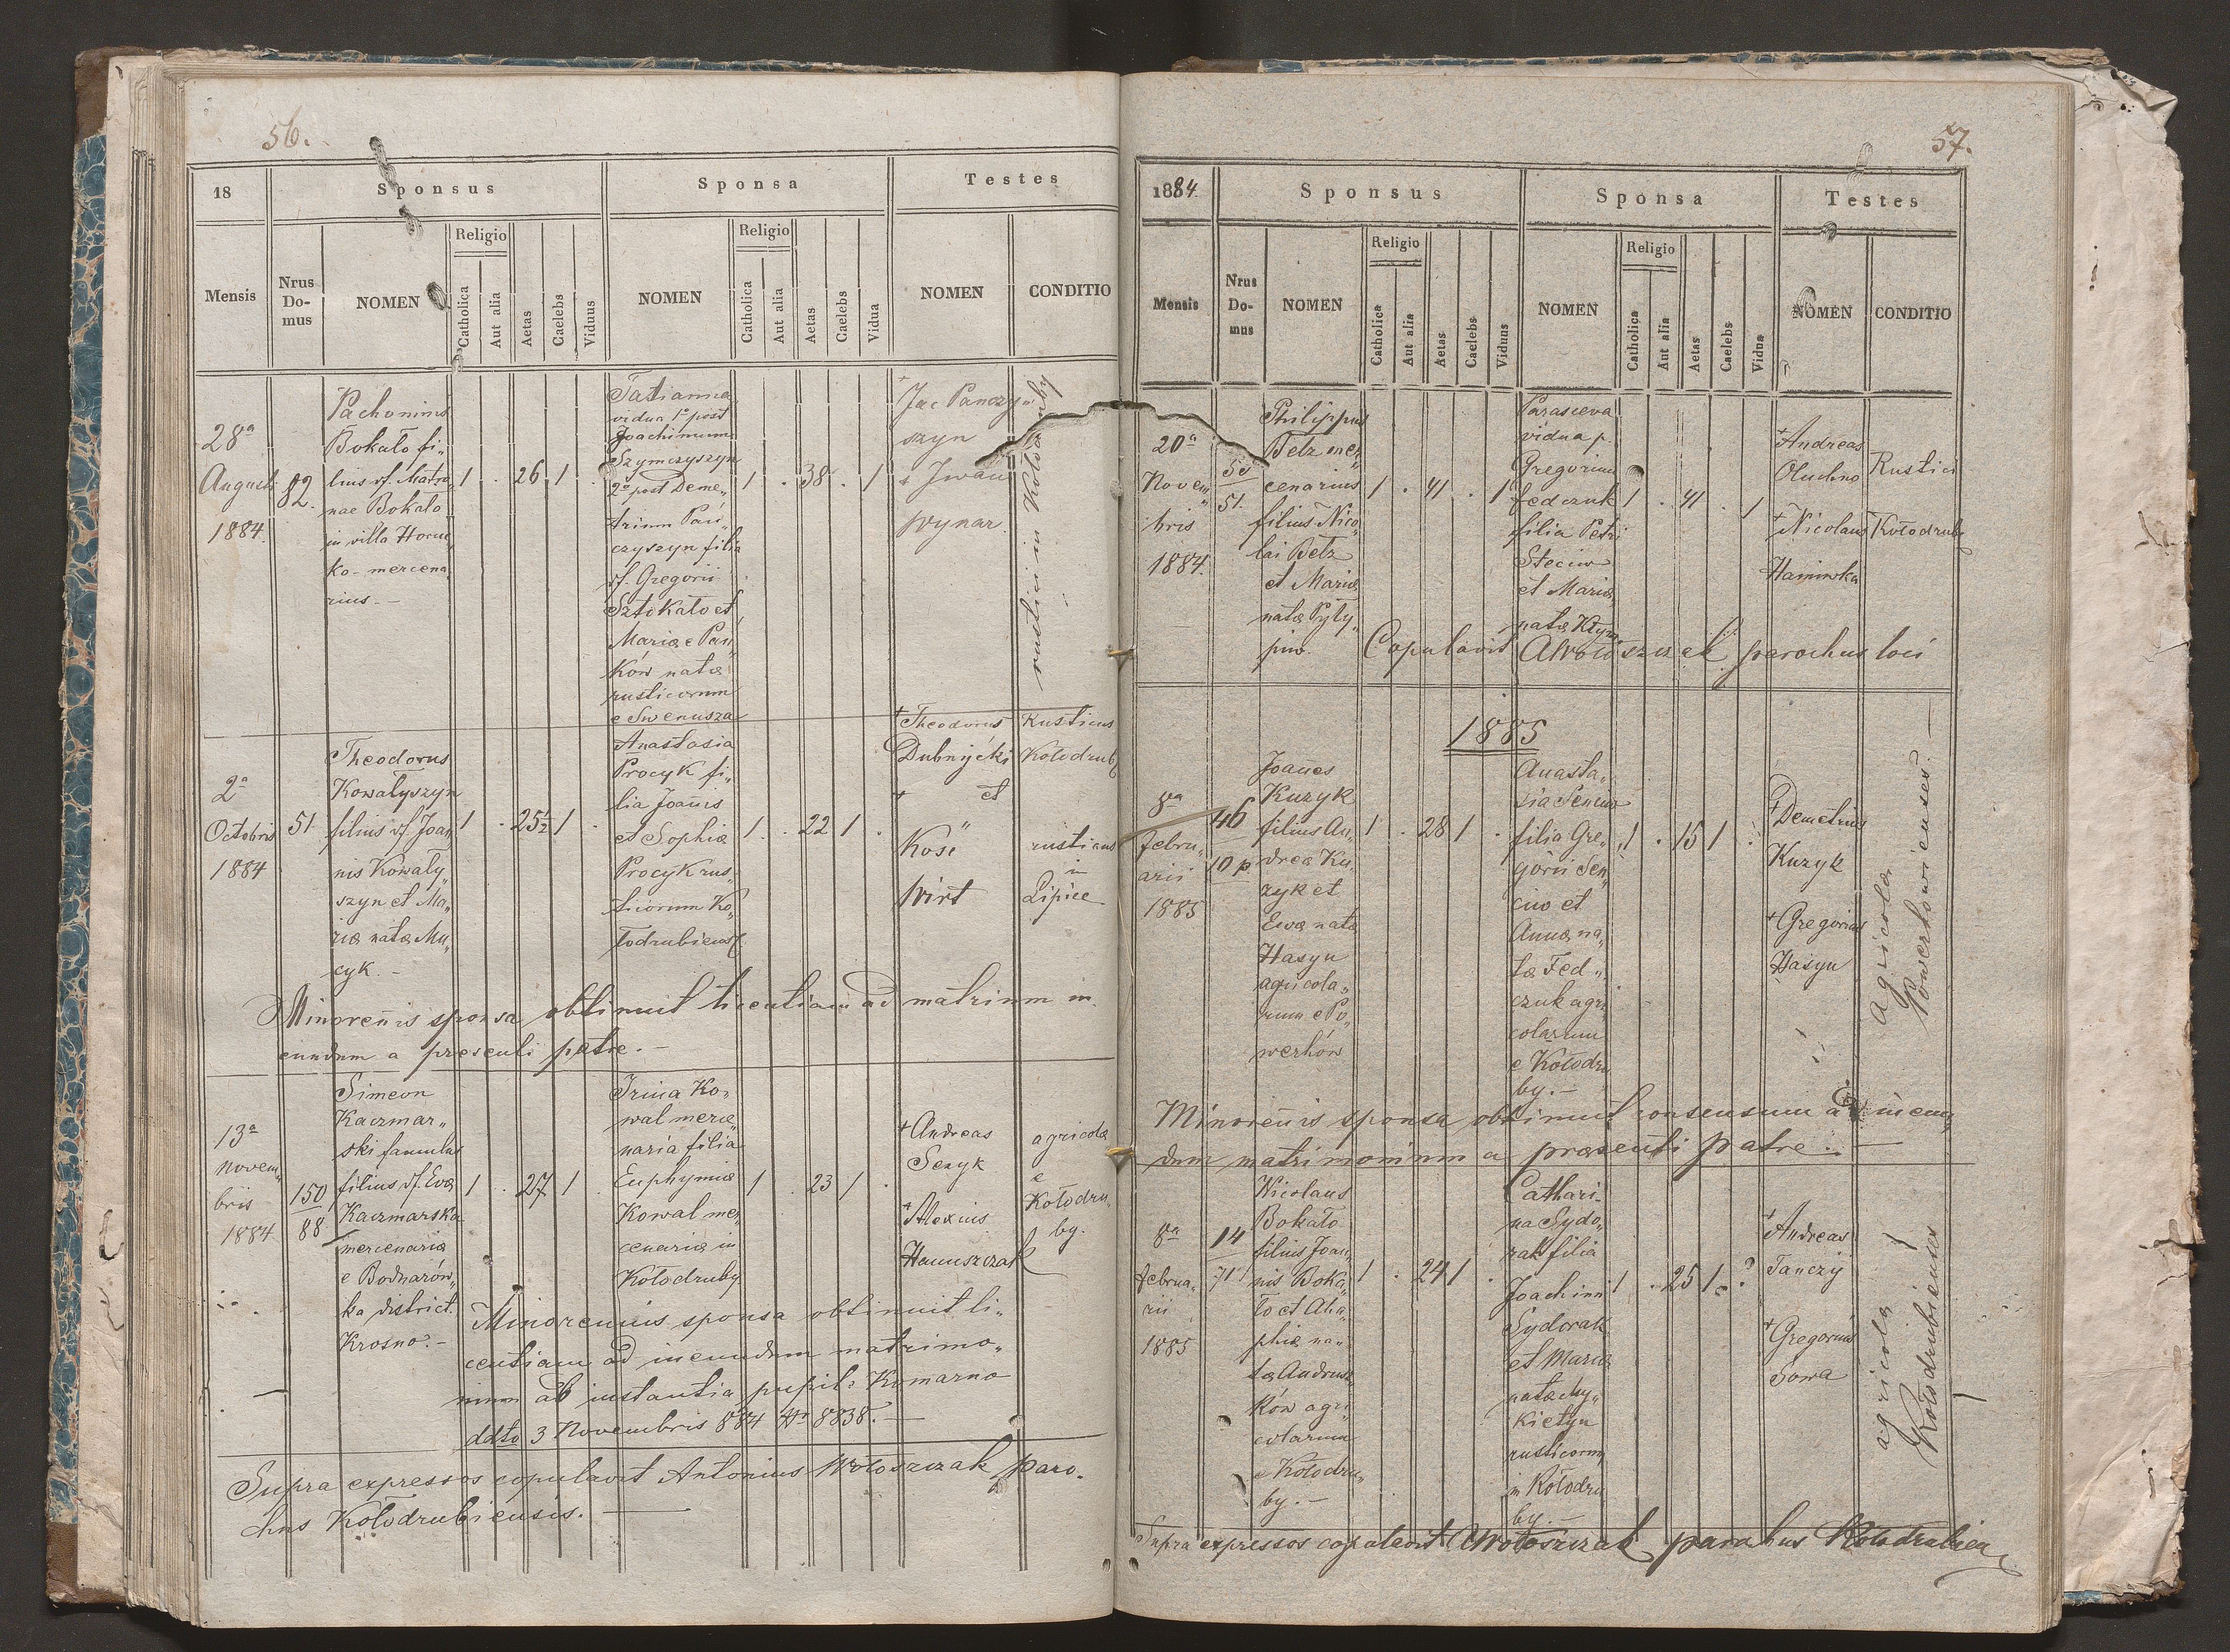 56.
18
Sponsus
Sponsa
Testes
Mensis
Nrus Do-mus
NOMEN
Religio
Catholica
Aut alia
Aetas
Caelebs
Viduus
NOMEN
Religio
Catholica
Aut alia
Aetas
Caelebs
Vidua
NOMEN
CONDITIO
28ª
Augusti
1884.
82.
Pachonimus
Bokało fi„
lius ss. Matro„
nae Bokało
in villa Horuc„
ko - mercena„
rius. —
1 . 26 1 .
Tatianna
vidua 1º post
Joachimum
Szymczyszyn
2º post Deme„
trium Pan„
czyszyn filia
ss. Gregorii
Sztokało et
Mariæ e Pan„
ków nata
rusticorum
e Susenusza
1 . 38 . 1
+ Jac Panczy„
szyn
+ Iwan
Wynar
rustici in Kołodruby
2ª
Octobris
1884
51
Theodorus
Kowałyszyn
filius ss. Joan„
nis Kowały„
szyn et Ma„
riæ natæ Mu„
cyk. —
1 . 25½ 1 .
Anastasia
Procyk fi„
lia Joannis
et Sophiæ
Procyk rus„
ticorum Ko„
łodrubiens.
1 . 22 1 .
+ Theodorus
Dubnijcki
+ et
Kość
Wirt
Rusticus
Kołodrub
rusticus
in
Lipice
Minorennis sponsa obtinuit licentiam ad matrimm in„
eundum a presenti patre. —
13ª
Novem„
bris
1884
150
88
Simeon
Kaczmar„
ski famulus
filius ss. Evæ
Kaczmarska
mercenaria
e Bodnarów„
ka district.
Krosno. —
1 . 27 1 .
Irina Ko„
wal merce„
naria filia
Euphymiæ
Kowal mer„
cenariæ in
Kołodruby
1 . 23 1 .
+ Andreas
Senyk
+ Alexius
Hanuszczak
agricolæ
e
Kołodru„
by.
Minorennis sponsa obtinuit li„
centiam ad ineundum matrimo„
nium ab instantia pupil. Komarno
ddto 3 Novembris 884 Nr 8838. —
Supra expressos copulavit Antonius Wołoszczak paro„
chus Kołodrubiensis. —
57.
1884.
Sponsus
Sponsa
Testes
Mensis
Nrus Do-mus
NOMEN
Religio
Catholica
Aut alia
Aetas
Caelebs
Viduus
NOMEN
Religio
Catholica
Aut alia
Aetas
Caelebs
Vidua
NOMEN
CONDITIO
20ª
Novem„
bris
1884.
51.
Philippus
Betz mer„
cenarius
filius Nico„
lai Betz
et Mariæ
natæ Pyły„
piw.
1 . 41 . 1
Parasceva
vidua p.
Gregorium
Fedczuk
filia Petri
Steciw
et Mariæ
natæ Kłym.
1 . 41 . 1
+ Andreas
Oluchno
+ Nicolaus
Haniwka
Rustici
Kołodruby
Copulavit AWołoszczak parochus loci
1885
8va
Febru„
arii
1885
46
10 p
Joannes
Kuzyk
filius An„
dreæ Ku„
zyk et
Evæ natæ
Hasyn
agricola„
rum e Po„
werhów
1 . 28 1 .
Anasta„
sia Senciw
filia Gre„
gorii Sen„
ciw et
Annæ na„
tæ Fed„
czuk agri„
colarum
e Kołodru„
by. —
1 . 15 1 .
+ Demetrius
Kuzyk
+ Gregorius
Hasyn
agricolæ
Powerhowienses. —
Minorennis sponsa obtinuit consensum ad ineun„
dum matrimonium a præsenti patre. —
8va
Februa„
rii
1885
14
71
Nicolaus
Bokało
filius Joan„
nis Boka„
ło et Aha„
phiæ na„
tæ Andrusz„
ków agri„
colarum
e Kołodru„
by. —
1 . 24 1 .
Cathari„
na Sydo„
rak filia
Joachimi
Sydorak
et Mariæ
natæ My„
kietyn
rusticorum
in Kołodru„
by. —
1 . 25 1 .
+ Andreas
Tanczy
+ Gregorius
Sowa
agricolæ
Kołodrubienses
Supra expressos copulavit AWołoszczak parochus Kołodrubien